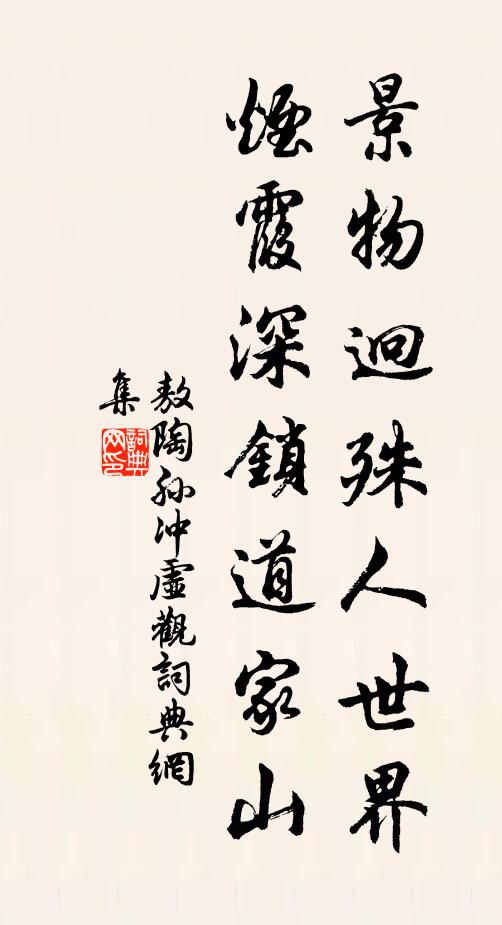 景物迥殊人世界
煙霞深鎖道家山
敖陶孫沖虛觀詞典網
集
詞典
网印